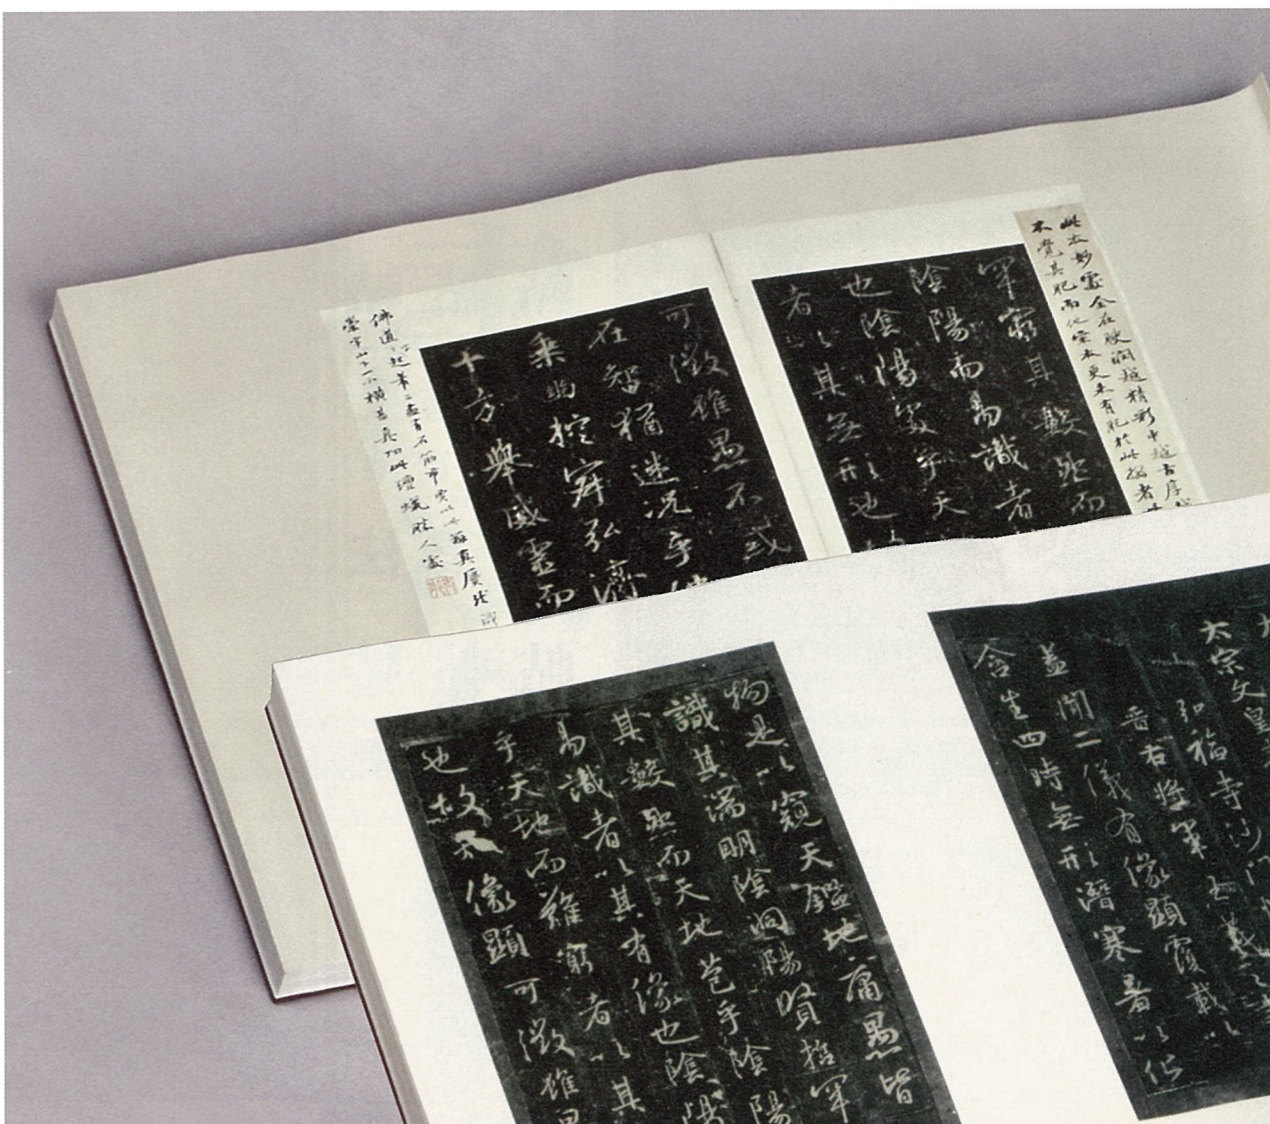 此本妙處全在腴潤超精彩中越古厚
本覺其肥而他宋本更未有肥於此搨者
罕窮其數然而
陰陽而易識者
也陰陽處乎天
者以其無形也
可徵雖愚不惑
在智猶迷況乎
乘幽控寂弘濟
十方舉威靈而
佛道二起筆
太宗文皇
弘福寺沙門
晉右將軍王羲之
蓋聞二儀有像顯覆載以
含生四時無形潛寒暑以化
物是以窺天鑑地庸愚皆
識其端明陰洞陽賢哲罕
其數然而天地苞乎陰陽
易識者以其有像也陰陽
乎天地而難窮者以其
也故像顯可徵雖愚